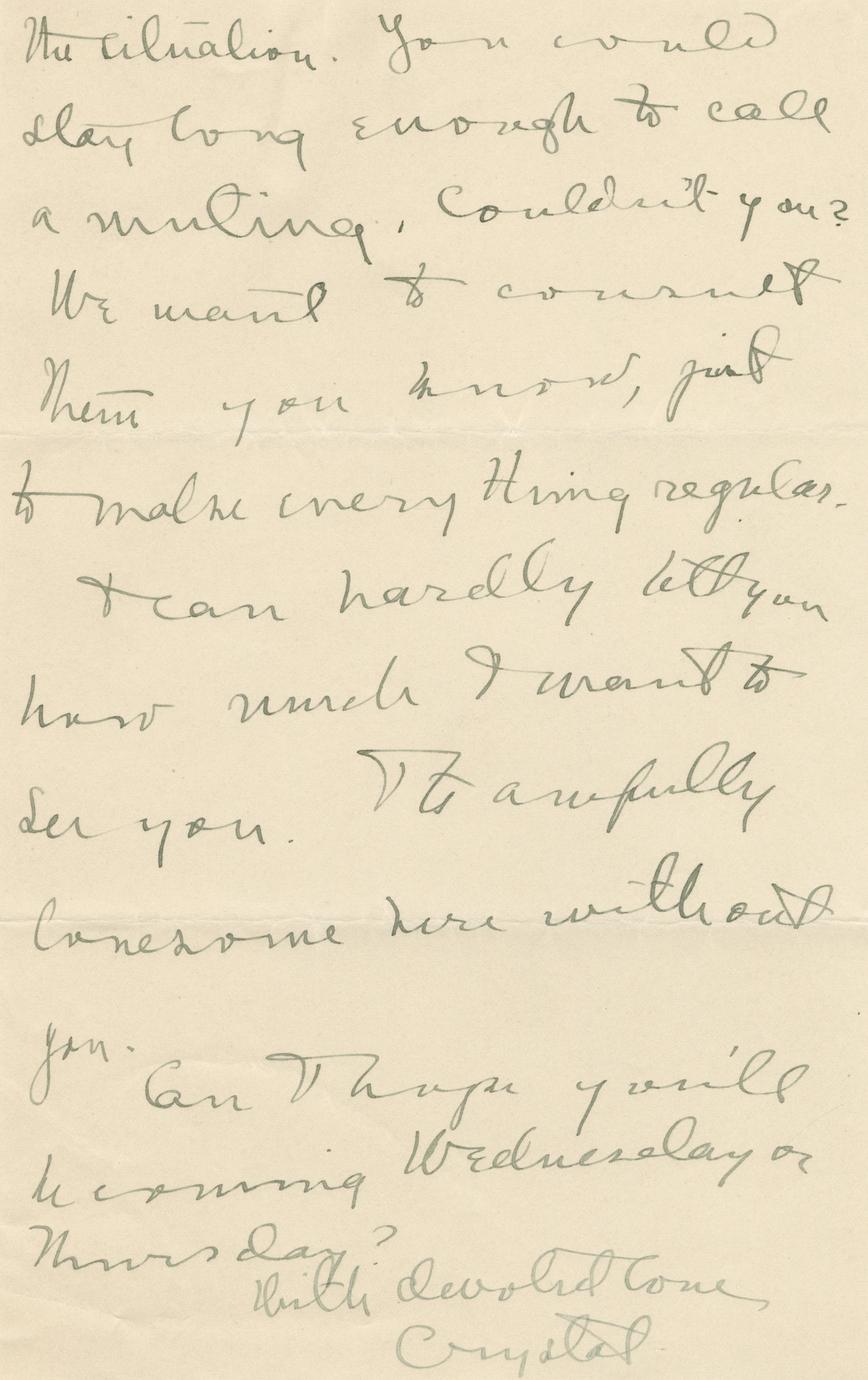 the situation. You could
stay long enough to call
a meeting, couldn't you?
We want to consult
them you know, just
to make every thing regular.
I can hardly tell you
how much I want to
see you. It's awfully
lonesome here without
you.
Can I hope you'll
be coming Wednesday or
Thursday?
With devoted love
Crystal